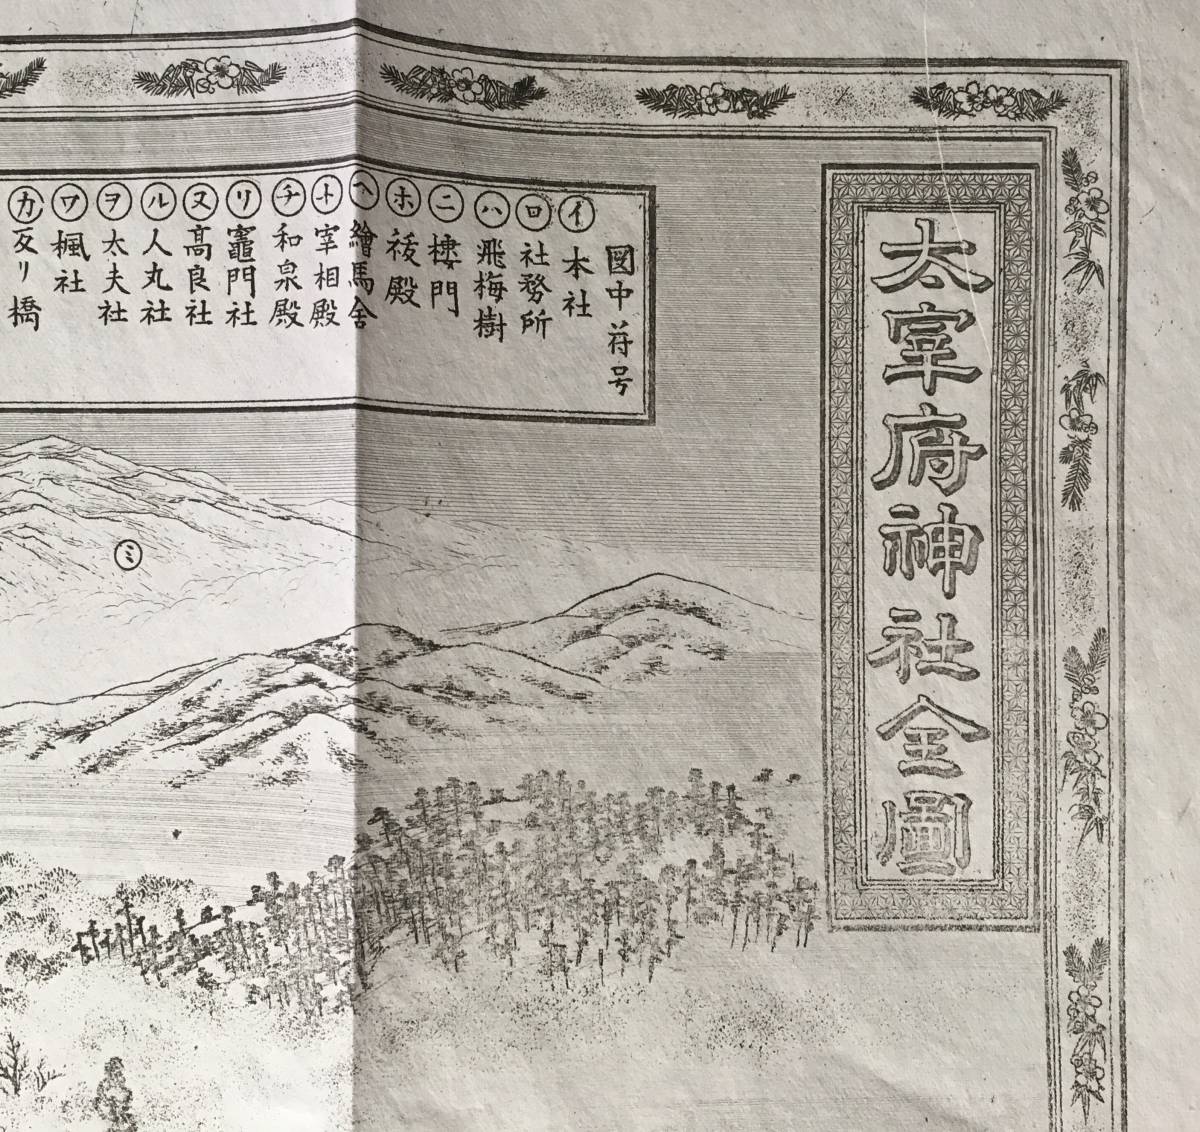 太宰府神社全圖
図中符号
イ 本社
ロ 社務所
ハ 飛梅樹
ニ 楼門
ホ 祓殿
ヘ 繪馬舎
ト 宰相殿
チ 和泉殿
リ 竈門社
ヌ 高良社
ル 人丸社
ヲ 太夫社
ワ 楓社
カ 反リ橋
ミ